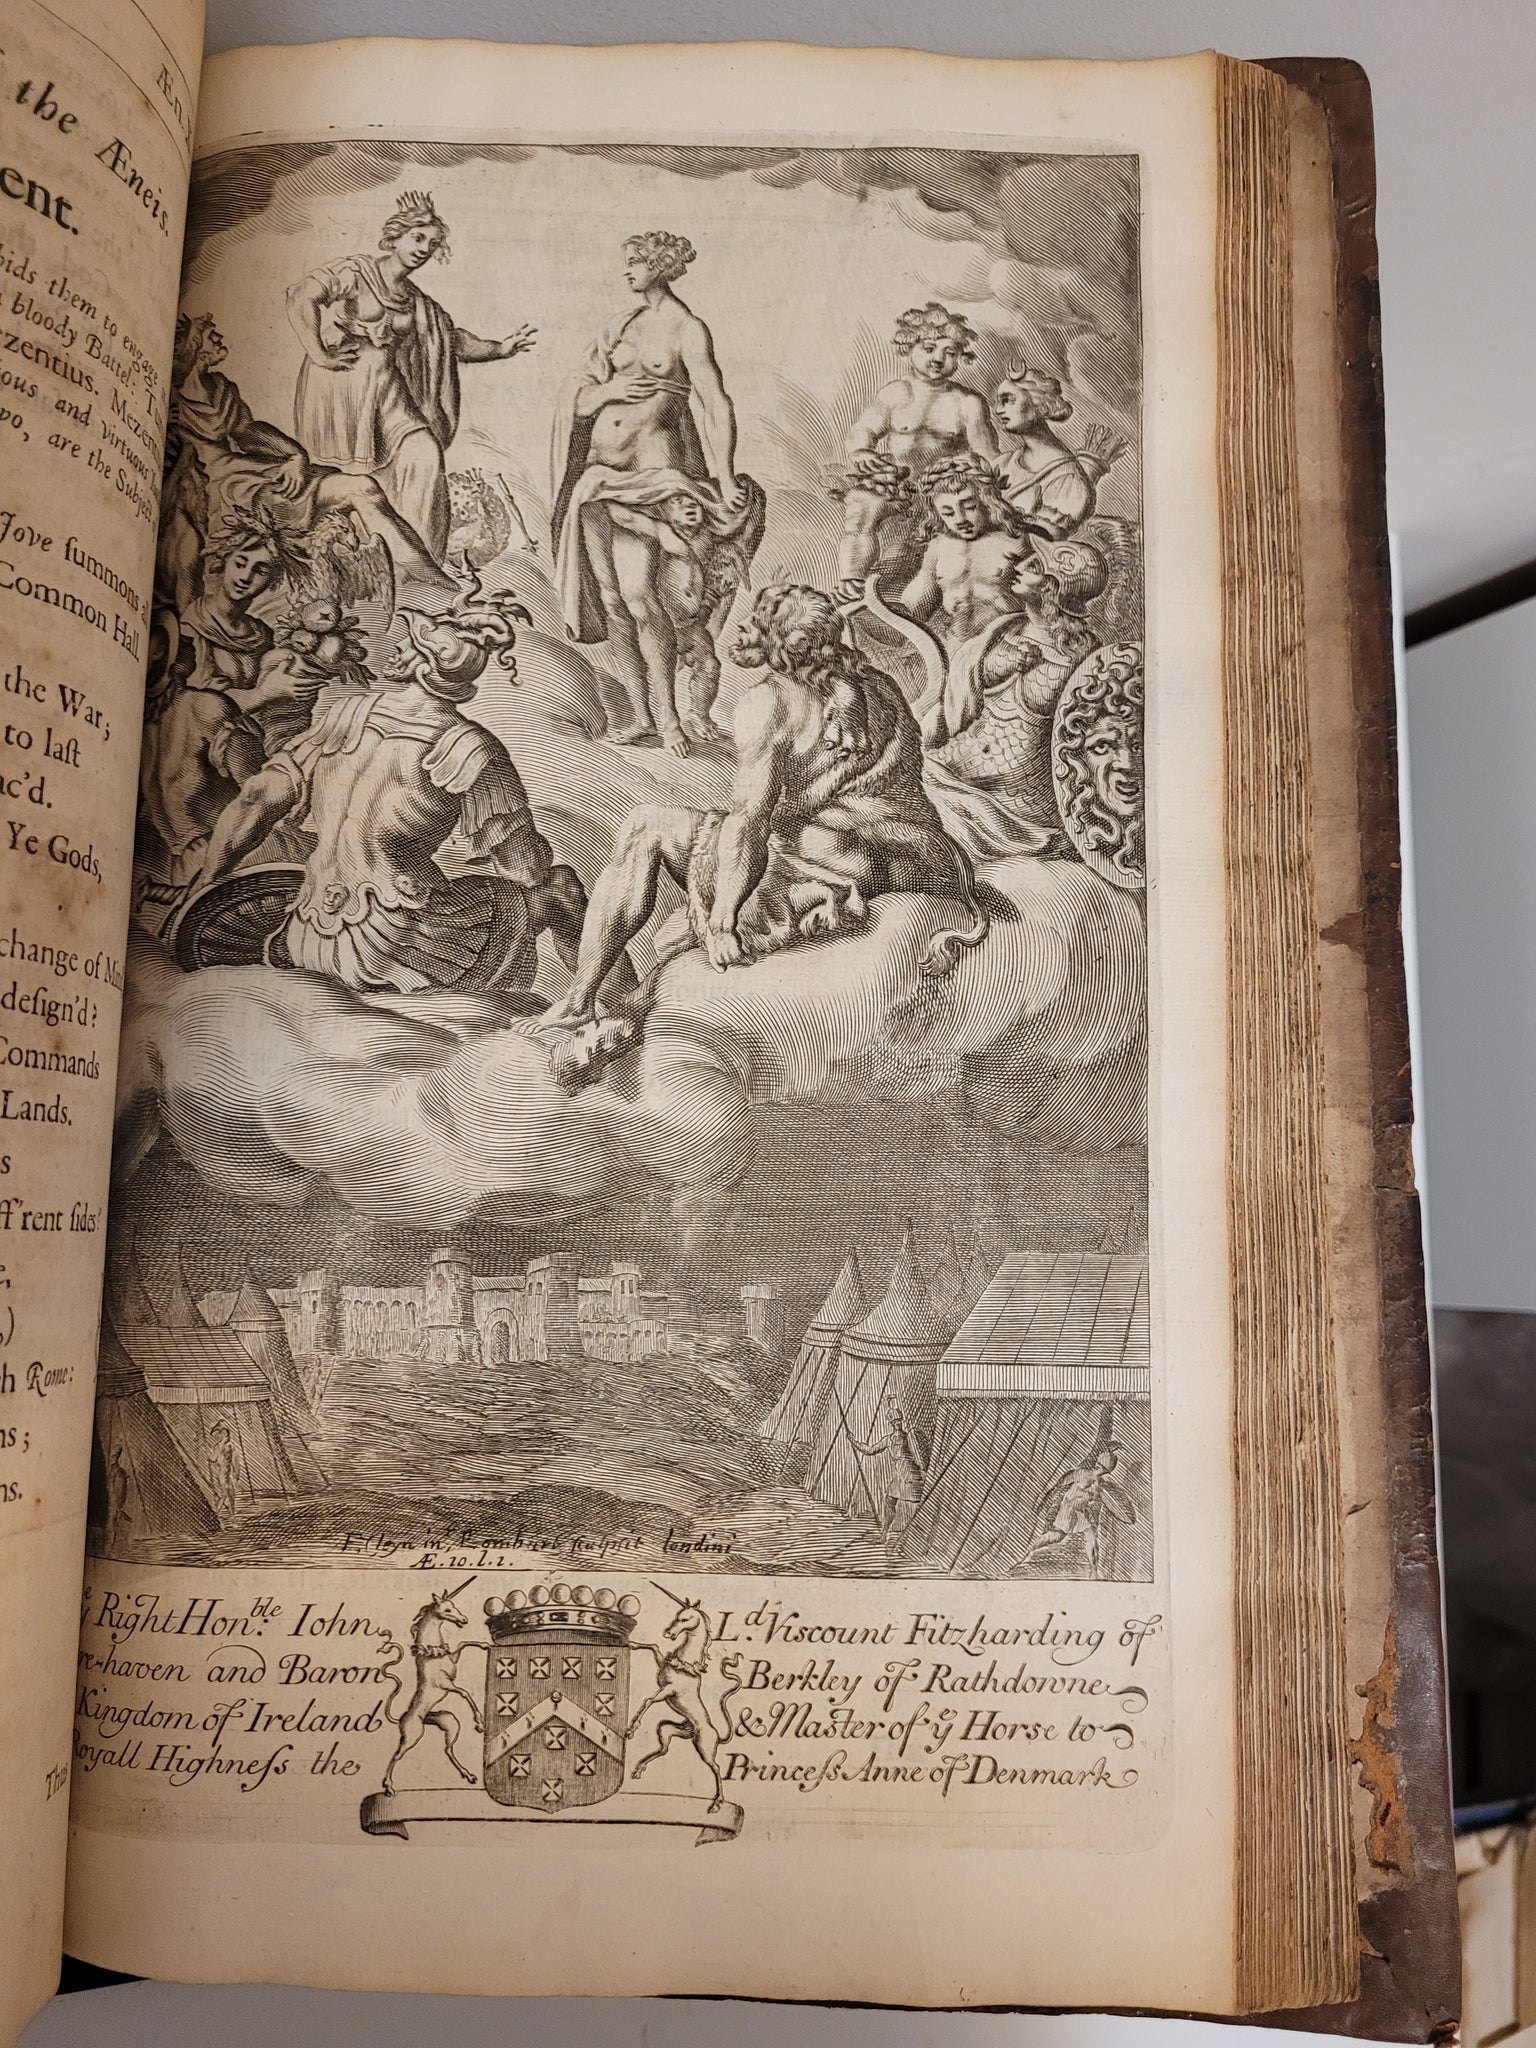 Æn
the Æneis.
ent.
bids them to engage
bloody Battel:
zentius.
ious and virtuous
wo, are the Subject
Jove summons
Common Hall.
the War;
to last
ac'd.
Ye Gods,
change of
design'd?
Commands
Lands.
s
ff'rent sides?
h Rome:
ns;
ns.
F. Cleyn in. Lombart sculpsit londini
Æ. 10. l. 1.
Right Hon.ble Iohn L.d Viscount Fitzharding of
re-haven and Baron Berkley of Rathdowne
Kingdom of Ireland & Master of ye Horse to
Royall Highness the Princess Anne of Denmark